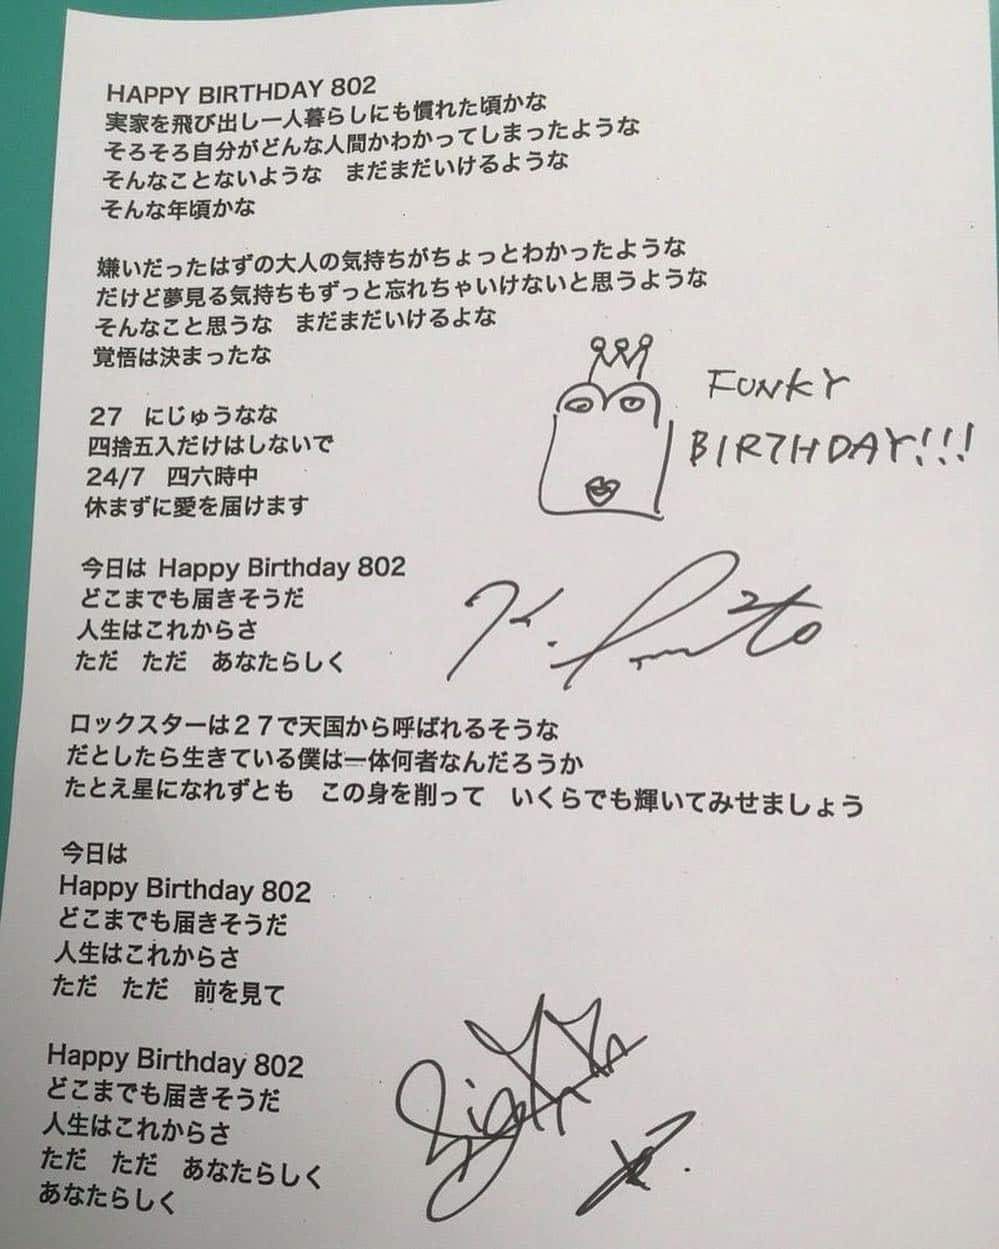 HAPPY BIRTHDAY 802
実家を飛び出し一人暮らしにも慣れた頃かな
そろそろ自分がどんな人間かわかってしまったような
そんなことないような　まだまだいけるような
そんな年頃かな
嫌いだったはずの大人の気持ちがちょっとわかったような
だけど夢見る気持ちもずっと忘れちゃいけないと思うような
そんなこと思うな　まだまだいけるよな
覚悟は決まったな
FUNKY
BIRTHDAY!!!
27　にじゅうなな
四捨五入だけはしないで
24/7　四六時中
休まずに愛を届けます
今日は Happy Birthday 802
どこまでも届きそうだ
人生はこれからさ
ただ　ただ　あなたらしく
ロックスターは２７で天国から呼ばれるそうな
だとしたら生きている僕は一体何者なんだろうか
たとえ星になれずとも　この身を削って　いくらでも輝いてみせましょう
今日は
Happy Birthday 802
どこまでも届きそうだ
人生はこれからさ
ただ　ただ　前を見て
Happy Birthday 802
どこまでも届きそうだ
人生はこれからさ
ただ　ただ　あなたらしく
あなたらしく